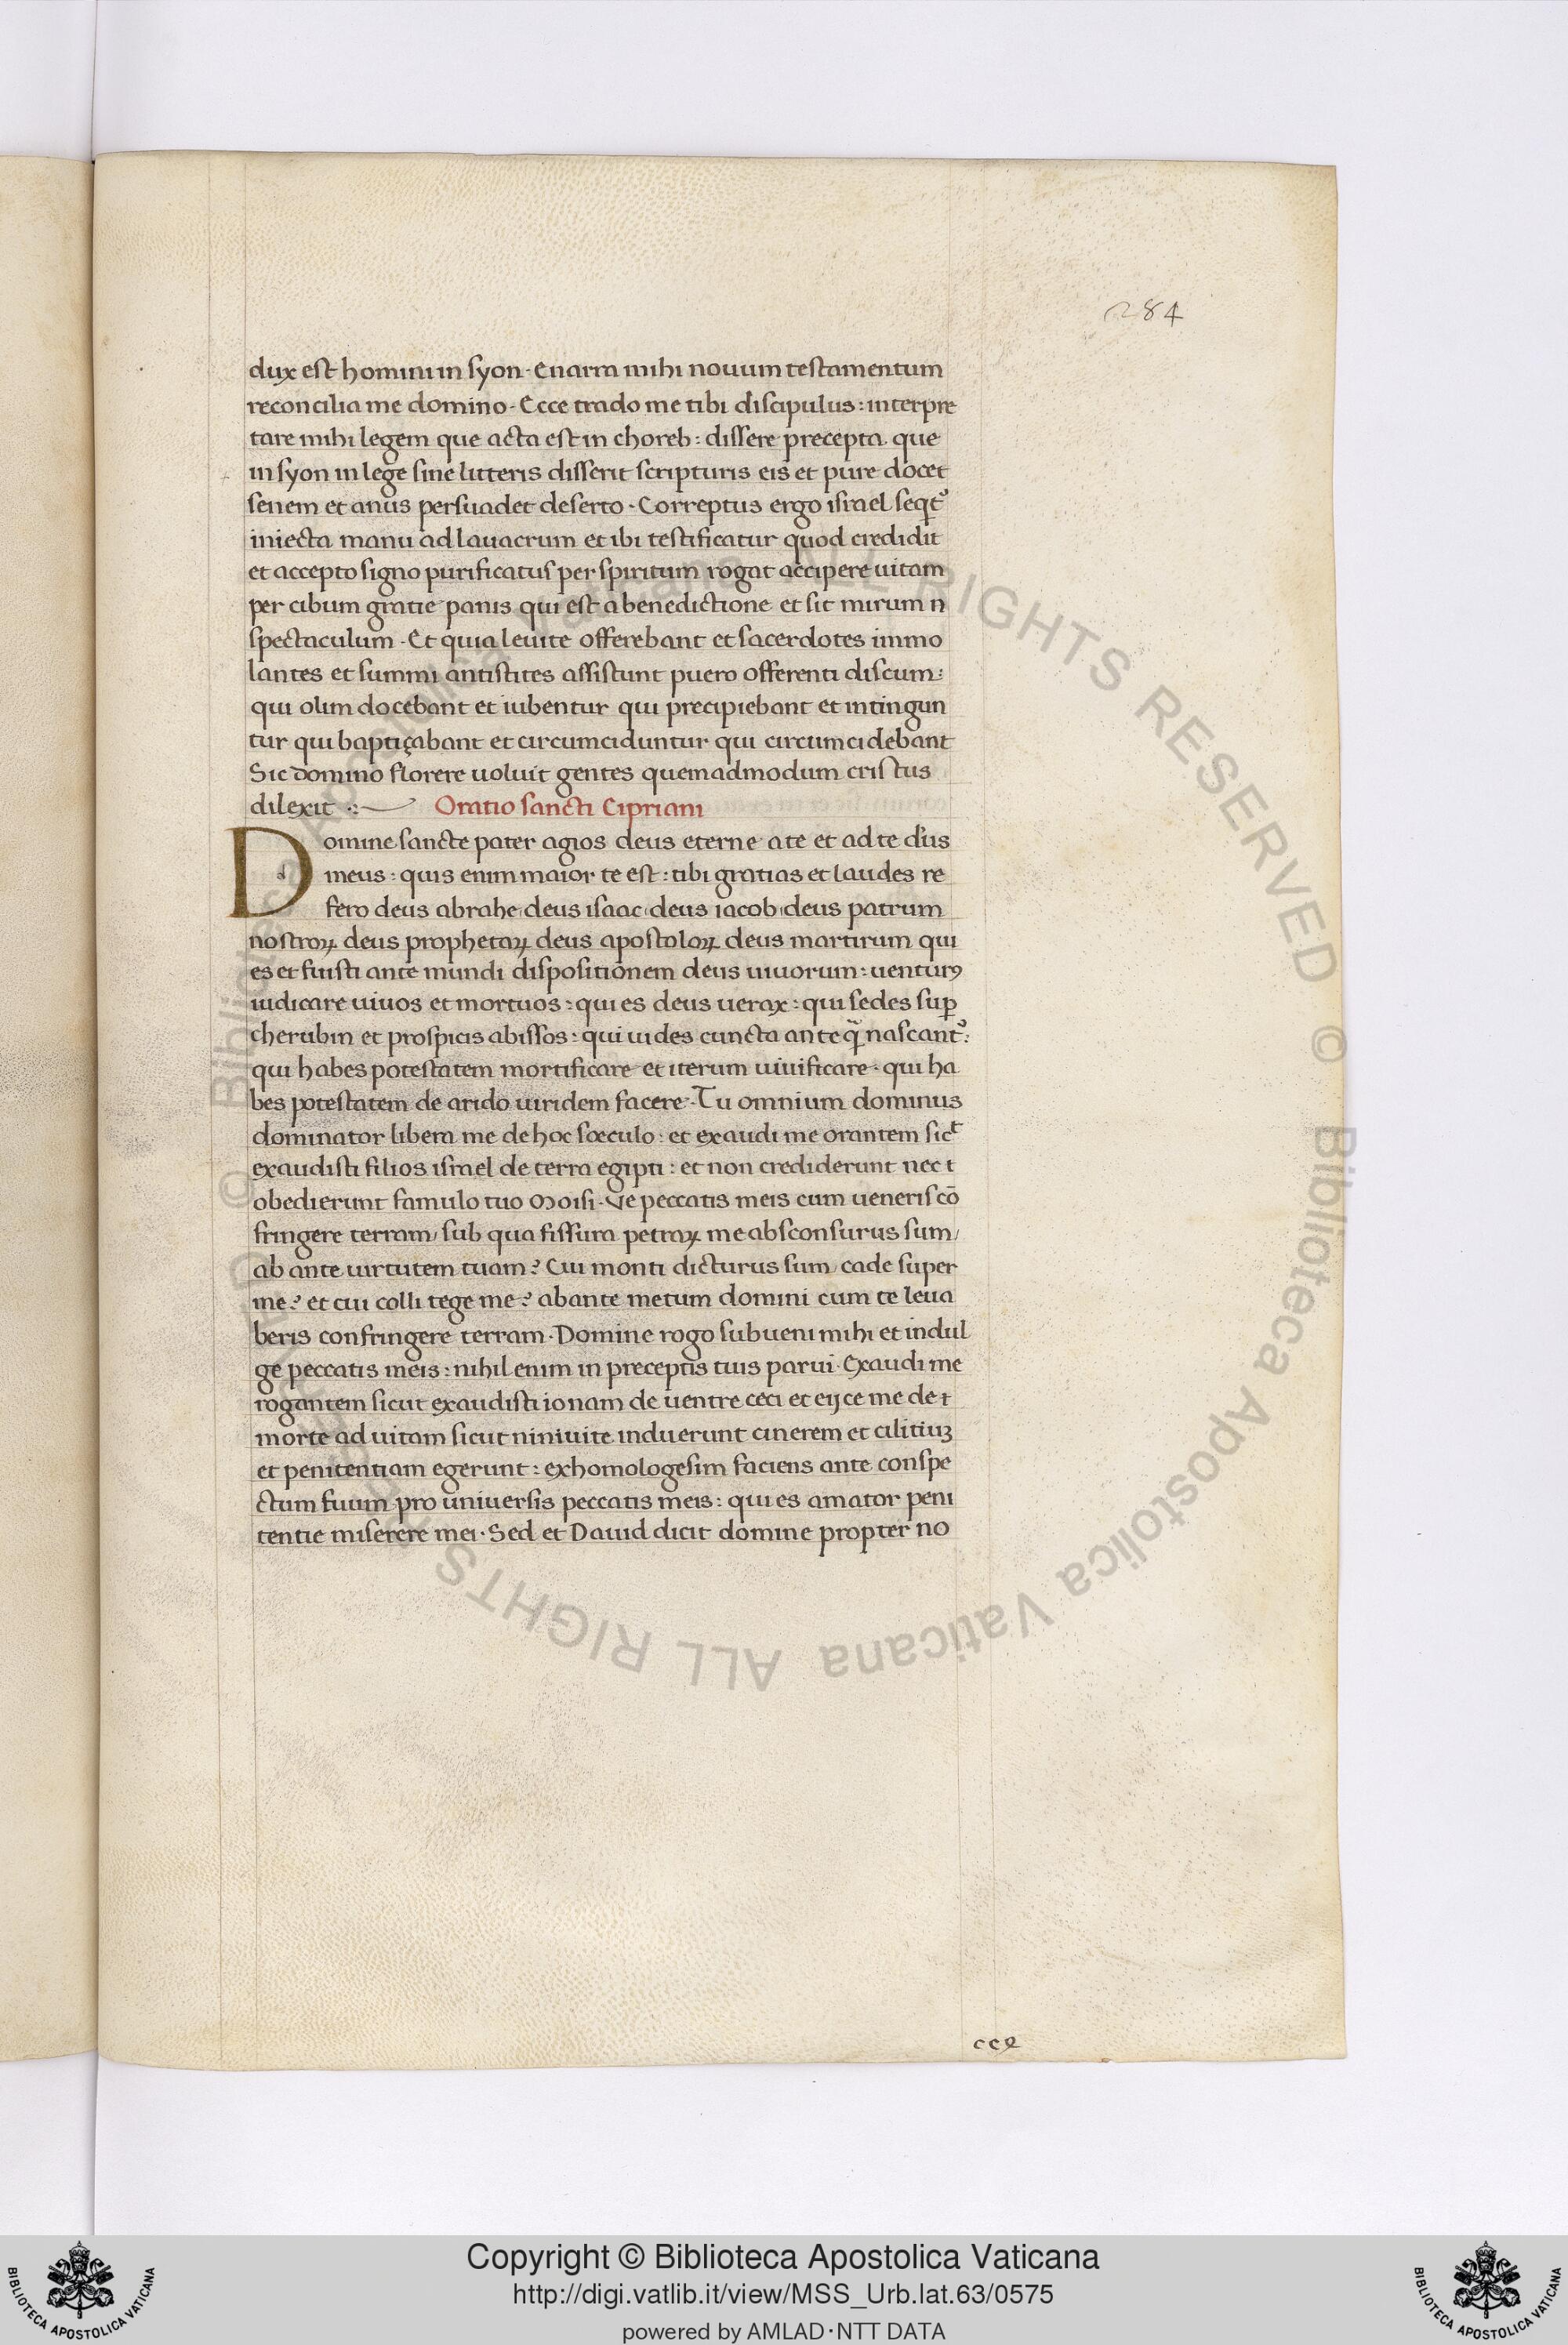 284
dux est homini in syon. Enarra mihi nouum testamentum
reconcilia me domino. Ecce trado me tibi discipulus: interpre
tare mihi legem que acta est in choreb: dissere precepta que
in syon in lege sine litteris disserit scripturis eis et pure docet
senem et anus persuadet deserto. Correptus ergo israel seqt᷑
iniecta manu ad lauacrum et ibi testificatur quod credidit
et accepto signo purificatus per spiritum rogat accipere uitam
per cibum gratie panis qui est a benedictione et sit mirum n
spectaculum. Et quia leuite offerebant et sacerdotes immo
lantes et summi antistites assistunt puero offerenti discum:
qui olim docebant et iubentur qui precipiebant et intingun
tur qui baptiçabant et circumciduntur qui circumcidebant
Sic domino florere uoluit gentes quemadmodum cristus
dilexit .:~ Oratio sancti Cipriani
D omine sancte pater agios deus eterne a te et ad te d'us
d meus: quis enim maior te est: tibi gratias et laudes re
fero deus abrahe, deus isaac, deus iacob, deus patrum
nostroꝝ deus prophetaꝝ deus apostoloꝝ deus martirum qui
es et fuisti ante mundi dispositionem deus uiuorum: uenturꝰ
iudicare uiuos et mortuos: qui es deus uerax: qui sedes suꝑ
cherubin et prospicis abissos: qui uides cuncta ante q̃ nascant᷑:
qui habes potestatem mortificare et iterum uiuificare. qui ha
bes potestatem de arido uiridem facere. Tu omnium dominus
dominator libera me de hoc sæculo: et exaudi me orantem sicᵗ
exaudisti filios israel de terra egipti: et non crediderunt nec t
obedierunt famulo tuo Moisi. Ve peccatis meis cum ueneris cō
fringere terram, sub qua fissura petraꝝ me absconsurus sum,
ab ante uirtutem tuam? Cui monti dicturus sum, cade super
me? et cui colli tege me? abante metum domini cum te leua
beris confringere terram. Domine rogo subueni mihi et indul
ge peccatis meis: nihil enim in preceptis tuis parui. Exaudi me
rogantem sicut exaudisti ionam de uentre ceci et eijce me de t
morte ad uitam sicut niniuite induerunt cinerem et cilitiuꝫ
et penitentiam egerunt: exhomologesim faciens ante conspe
ctum fuum pro uniuersis peccatis meis: qui es amator peni
tentie miserere mei. Sed et Dauid dicit domine propter no
Copyright © Biblioteca Apostolica Vaticana
http://digi.vatlib.it/view/MSS_Urb.lat.63/0575
powered by AMLAD·NTT DATA
BIBLIOTECA APOSTOLICA VATICANA
BIBLIOTECA APOSTOLICA VATICANA
© Biblioteca Apostolica Vaticana ALL RIGHTS RESERVED © Biblioteca Apostolica Vaticana ALL RIGHTS RESERVED